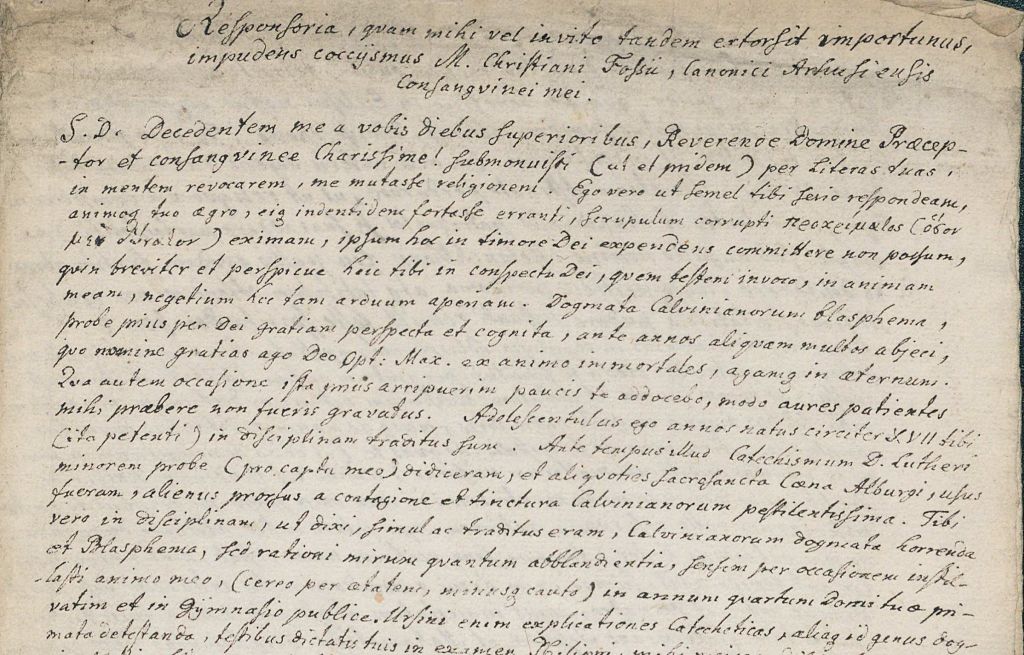 Responsoria, qvam mihi vel invito tandem extorsit importunus,
impudens coccijsmus M. Christiani Fossii, Canonici Arhusiensis
Consangvinei mei.
S. D. Decedentem me a vobis diebus superioribus, Reverende Domine Præcep-
-tor et consangvinee Charissime! submonuisti (ut et pridem) per literas tuas,
in mentem revocarem, me mutasse religionem. Ego vero ut semel tibi serio respondeam,
animoq tuo ægro, eiq indentidem fortasse erranti, scrupulum corrupti
eximam, ipsum hoc in timore Dei expendens committere non possum,
qvin breviter et perspicue heic tibi in conspectu Dei, qvem testem invoco, in animam
meam, negotium hoc tam arduum aperiam. Dogmata Calvinianorum blasphema,
probe prius per Dei gratiam perspecta et cognita, ante annos aliqvam multos abjeci,
qvo nomine gratias ago Deo Opt: Max. ex animo immortales, agamq in æternum.
Qva autem occasione ista prius arripuerim paucis te addocebo, modo aures patientes
mihi præbere non fueris gravatus. Adolescentulus ego annos natus circiter XVII tibi
(ita petenti) in disciplinam traditus sum. Ante tempus illud Catechismum D. Lutheri
minorem probe (pro captu meo) didiceram, et aliqvoties sacrosancta Cœna Alburgi, usus
fueram, alienus prorsus a contagione et tinctura Calvinianorum pestilentissima. Tibi
vero in disciplinam, ut dixi, simul ac traditus eram, Calvinianorum dogmata horrenda
et Blasphema, sed rationi mirum qvantum abblandientia, sensim per occasionem instil-
-lasti animo meo, (cereo per ætatem, minusq cauto) in annum qvartum Domi tuæ pri-
vatim et in Gymnasio publice. Ursini enim explicationes Catecheticas, aliaq id genus dog-
mata detestanda, testibus dictatis tuis in examen Philippi, mihi